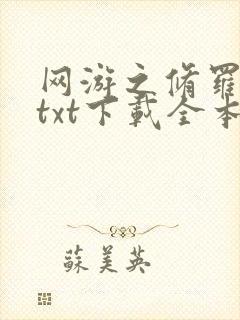 网游之脩羅
txt下載全本
蘇美英